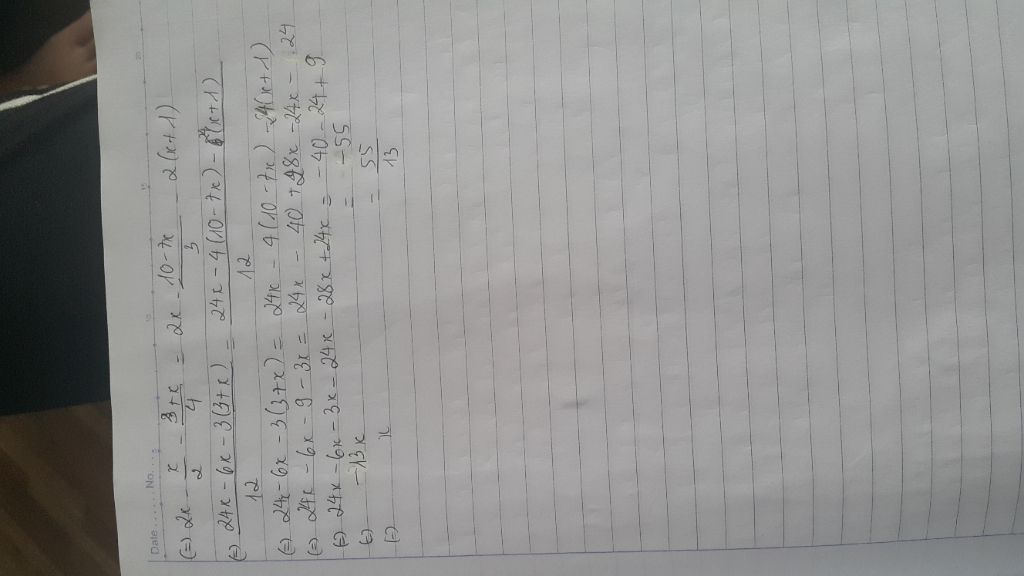 Date ...... No. ...
(=) 2x - x/2 - (3+x)/4 = 2x - (10-7x)/3 - 2(x+1)
(=) (24x - 6x - 3(3+x))/12 = (24x - 4(10-7x) - 24(x+1))/12
(=) 24x - 6x - 3(3+x) = 24x - 4(10-7x) - 24(x+1)
(=) 24x - 6x - 9 - 3x = 24x - 40 + 28x - 24x - 24
(=) 24x - 6x - 3x - 24x - 28x + 24x = -40 - 24 + 9
(=) -13x = -55
(=) x = 55/13